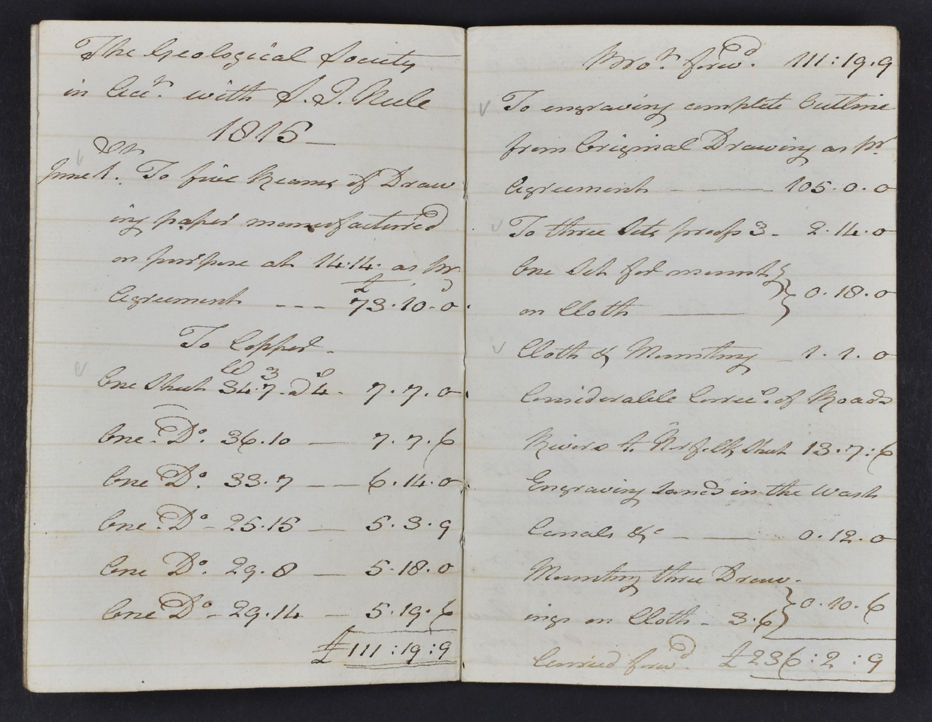 The Geological Society
in Acct. with S. J. Neele
1815
June 1. To five Reams of Draw
ing paper manufactured
on purpose at 14.14. as pr.
£
Agreement - - - 73.10.0
To Copper.
lb oz s d
One Sheet 34.7. @ 4. 7.7.0
One. Do. 36.10 — 7.7.6
One Do. 33.7 — 6.14.0
One. Do - 25.15 — 5.3.9
One Do. 29.8 — 5.18.0
One Do - 29.14 — 5.19.6
£111:19:9
Brot. forwd. 111:19.9
To engraving complete Outline
from Original Drawing as pr.
Agreement — 105.0.0
To three Sets proofs 3 - 2.14.0
One Set for mountg
on Cloth — 0.18.0
Cloth & Mounting 1.1.0
Considerable Correcs. of Roads
Rivers to Norfolk Sheet 13.7.6
Engraving sand in the Wash
Canals &c - — 0.12.0
Mounting three Draw-
ings on Cloth - 3.6 0.10.6
Carried forwd. £236:2:9